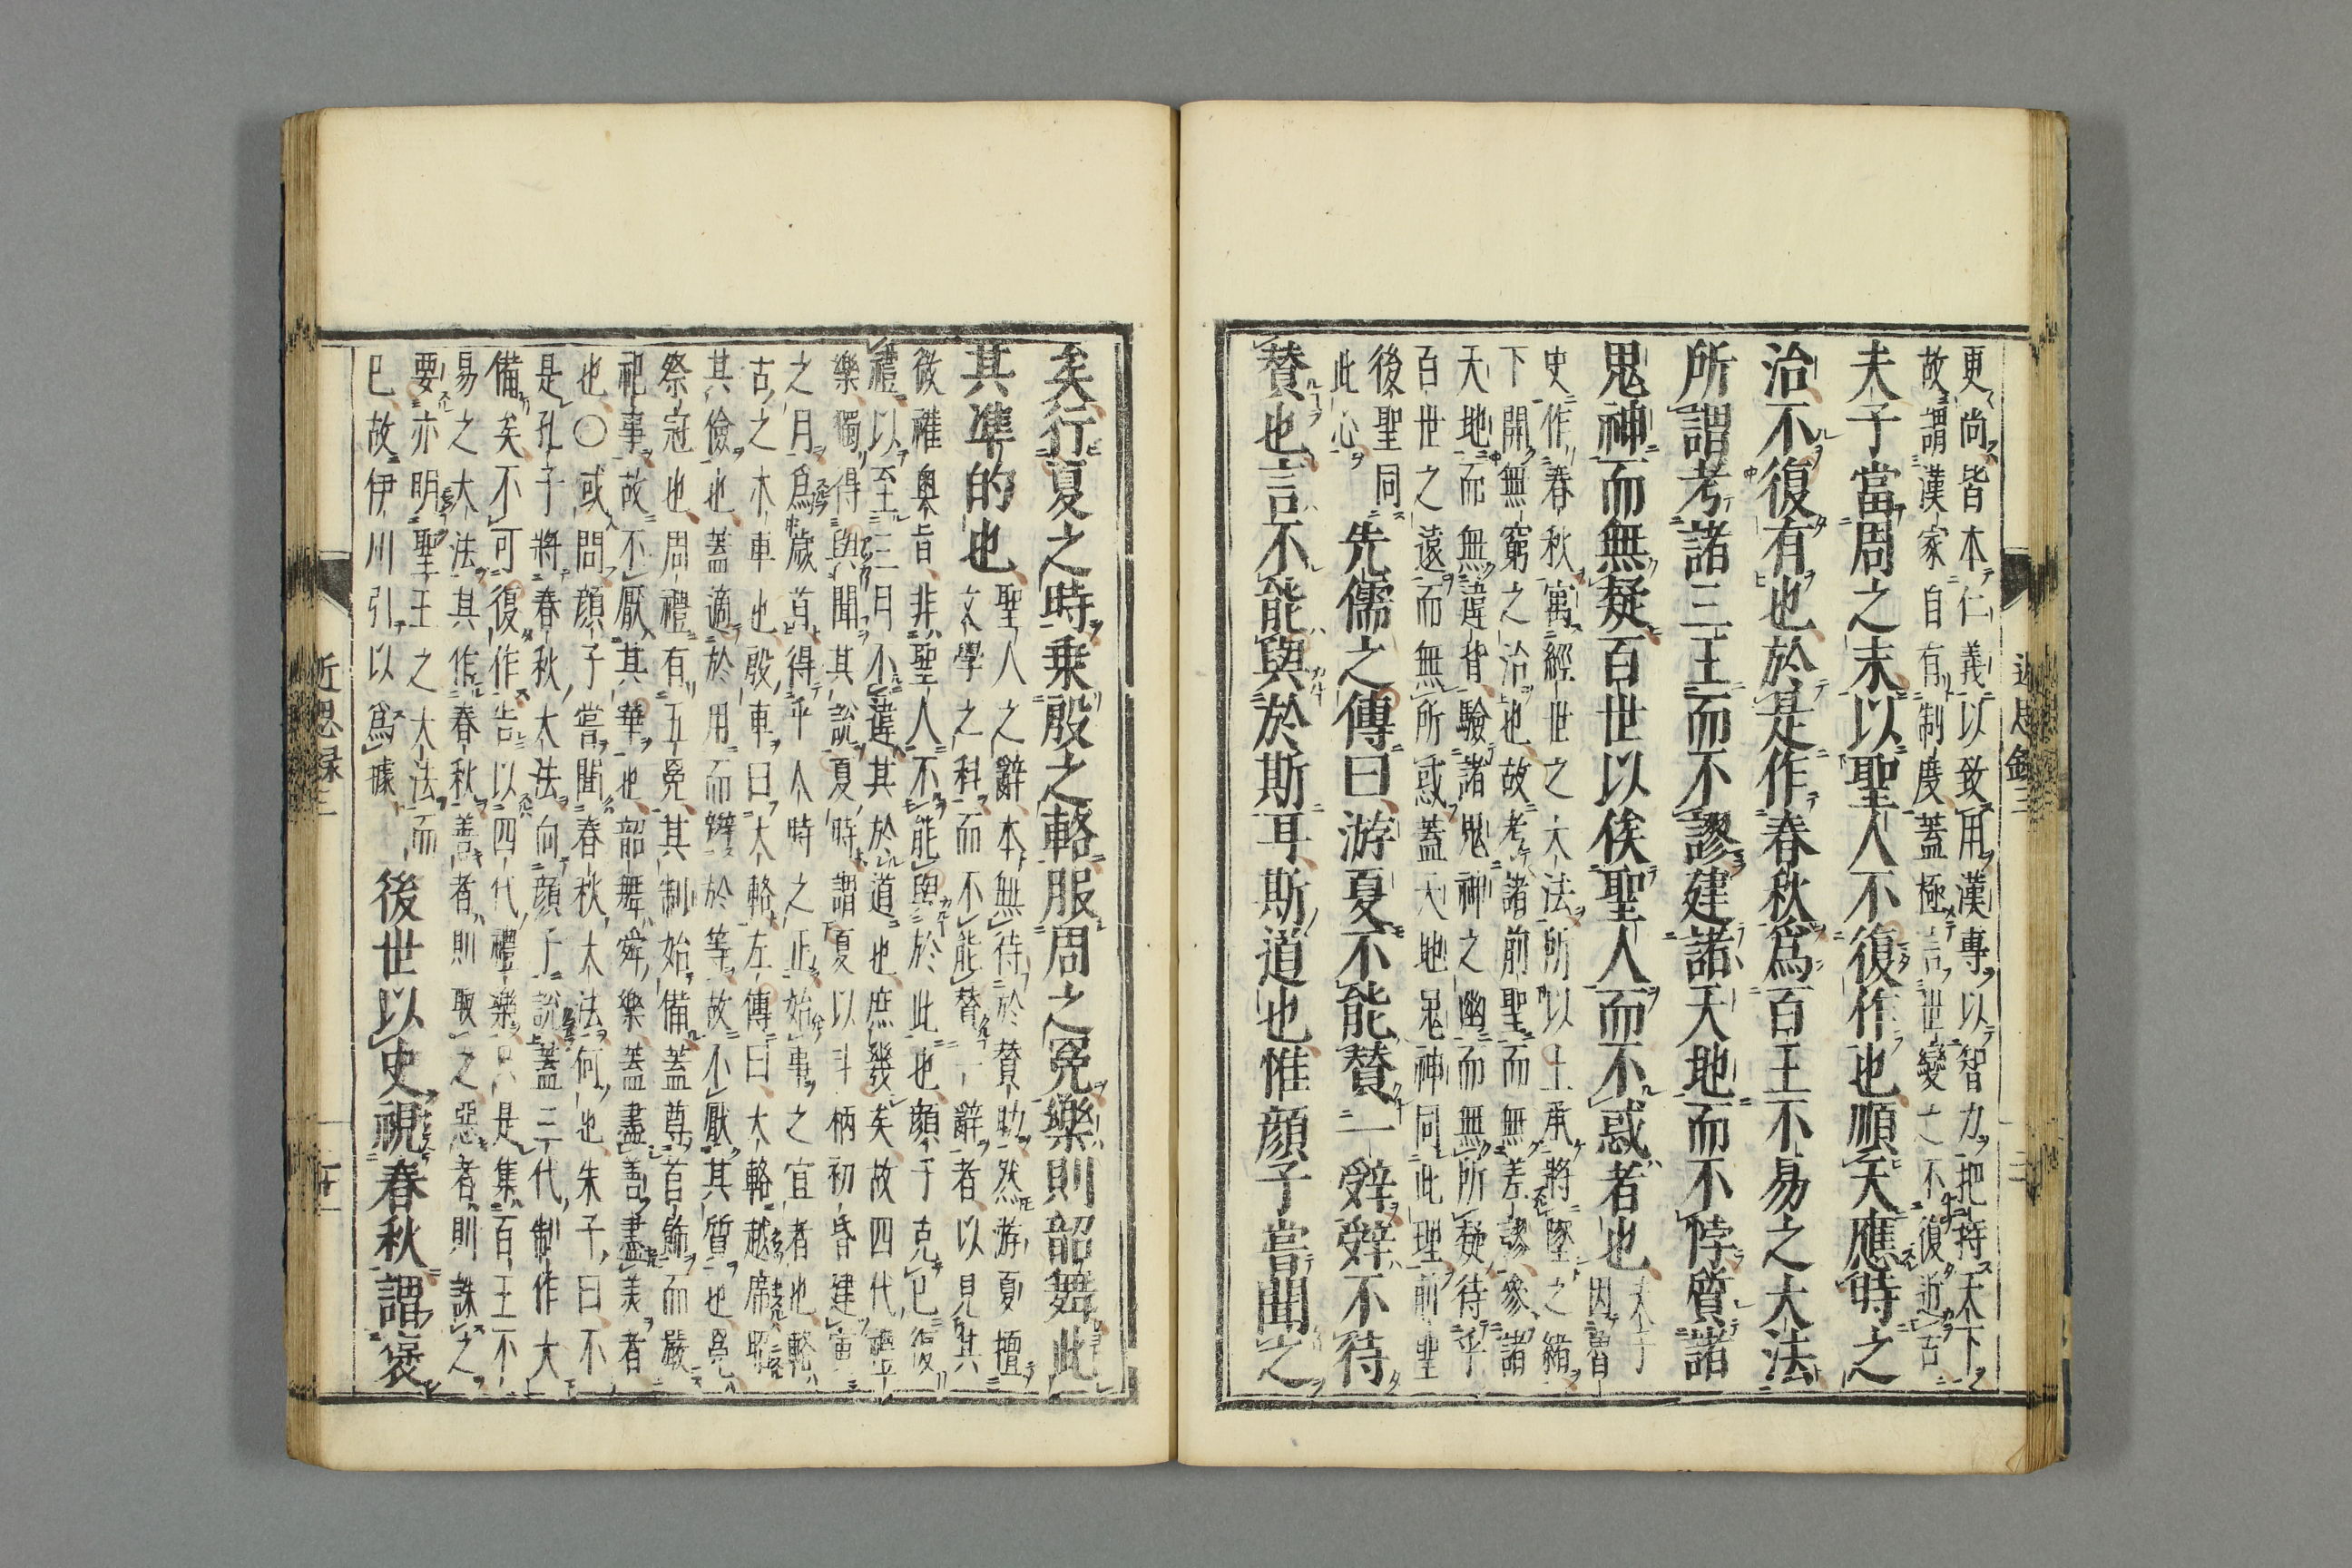 更尚皆本仁義以致用漢專以智力把持天下
故謂漢家自有制度蓋極言世變之不復近古
夫子當周之末以聖人不復作也順天應時之
治不復有也於是作春秋爲百王不易之大法
所謂考諸三王而不謬建諸天地而不悖質諸
鬼神而無疑百世以俟聖人而不惑者也
夫子
因魯
史作春秋寓經世之大法所以上承將墜之緒
下開無窮之治也故考諸前聖而無差謬參諸
天地而無違背驗諸鬼神之幽而無所疑待乎
百世之遠而無所惑蓋天地鬼神同此理前聖
後聖同
此心
先儒之傳曰游夏不能賛一辭辭不待
賛也言不能與於斯耳斯道也惟顔子嘗聞之
矣行夏之時乗殷之輅服周之冕樂則韶舞此
其凖的也
聖人之辭本無待於賛助然游夏擅
文學之科而不能賛一辭者以見其
微權奥旨非聖人不能與於此也顔子克己復
禮以至三月不違其於道也庶幾矣故四代禮
樂獨得與聞其説夏時謂夏以斗柄初昏建寅
之月爲歳首得乎人時之正始事之宜者也輅
古之木車也殷車曰大輅左傳曰大輅越席昭
其儉也蓋適於用而辨於等故不厭其質也冕
祭冠也周禮有五冕其制始備蓋尊首飾而嚴
祀事故不厭其華也韶舞舜樂蓋盡善盡美者
也〇或問顔子嘗聞春秋大法何也朱子曰不
是孔子將春秋大法向顔子説蓋三代制作大
備矣不可復作告以四代禮樂只是集百王不
易之大法其作春秋善者則取之惡者則誅之
要亦明聖王之大法而
已故伊川引以爲據
後世以史視春秋謂褒
近思録三